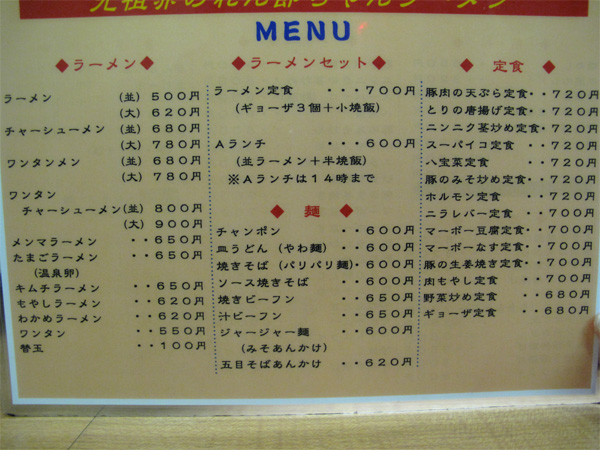 元祖赤のれん節ちゃんラーメン
MENU
◆ラーメン◆
ラーメン (並) 500円
(大) 620円
チャーシューメン (並) 680円
(大) 780円
ワンタンメン (並) 680円
(大) 780円
ワンタン
チャーシューメン(並) 800円
(大) 900円
メンマラーメン ・・650円
たまごラーメン ・・650円
(温泉卵)
キムチラーメン ・・650円
もやしラーメン ・・620円
わかめラーメン ・・620円
ワンタン ・・550円
替玉 ・・100円
◆ラーメンセット◆
ラーメン定食 ・・・700円
(ギョーザ3個+小焼飯)
Aランチ ・・・600円
(並ラーメン+半焼飯)
※Aランチは14時まで
◆ 麺 ◆
チャンポン ・・600円
皿うどん (やわ麺) ・・600円
焼きそば (パリパリ麺)・・600円
ソース焼きそば ・・600円
焼きビーフン ・・650円
汁ビーフン ・・650円
ジャージャー麺 ・・600円
(みそあんかけ)
五目そばあんかけ ・・620円
◆ 定食 ◆
豚肉の天ぷら定食・・720円
とりの唐揚げ定食・・720円
ニンニク茎炒め定食・・720円
スーパイコ定食 ・・720円
八宝菜定食 ・・720円
豚のみそ炒め定食・・720円
ホルモン定食 ・・720円
ニラレバー定食 ・・700円
マーボー豆腐定食・・700円
マーボーなす定食・・700円
豚の生姜焼き定食・・700円
肉もやし定食 ・・700円
野菜炒め定食 ・・680円
ギョーザ定食 ・・680円